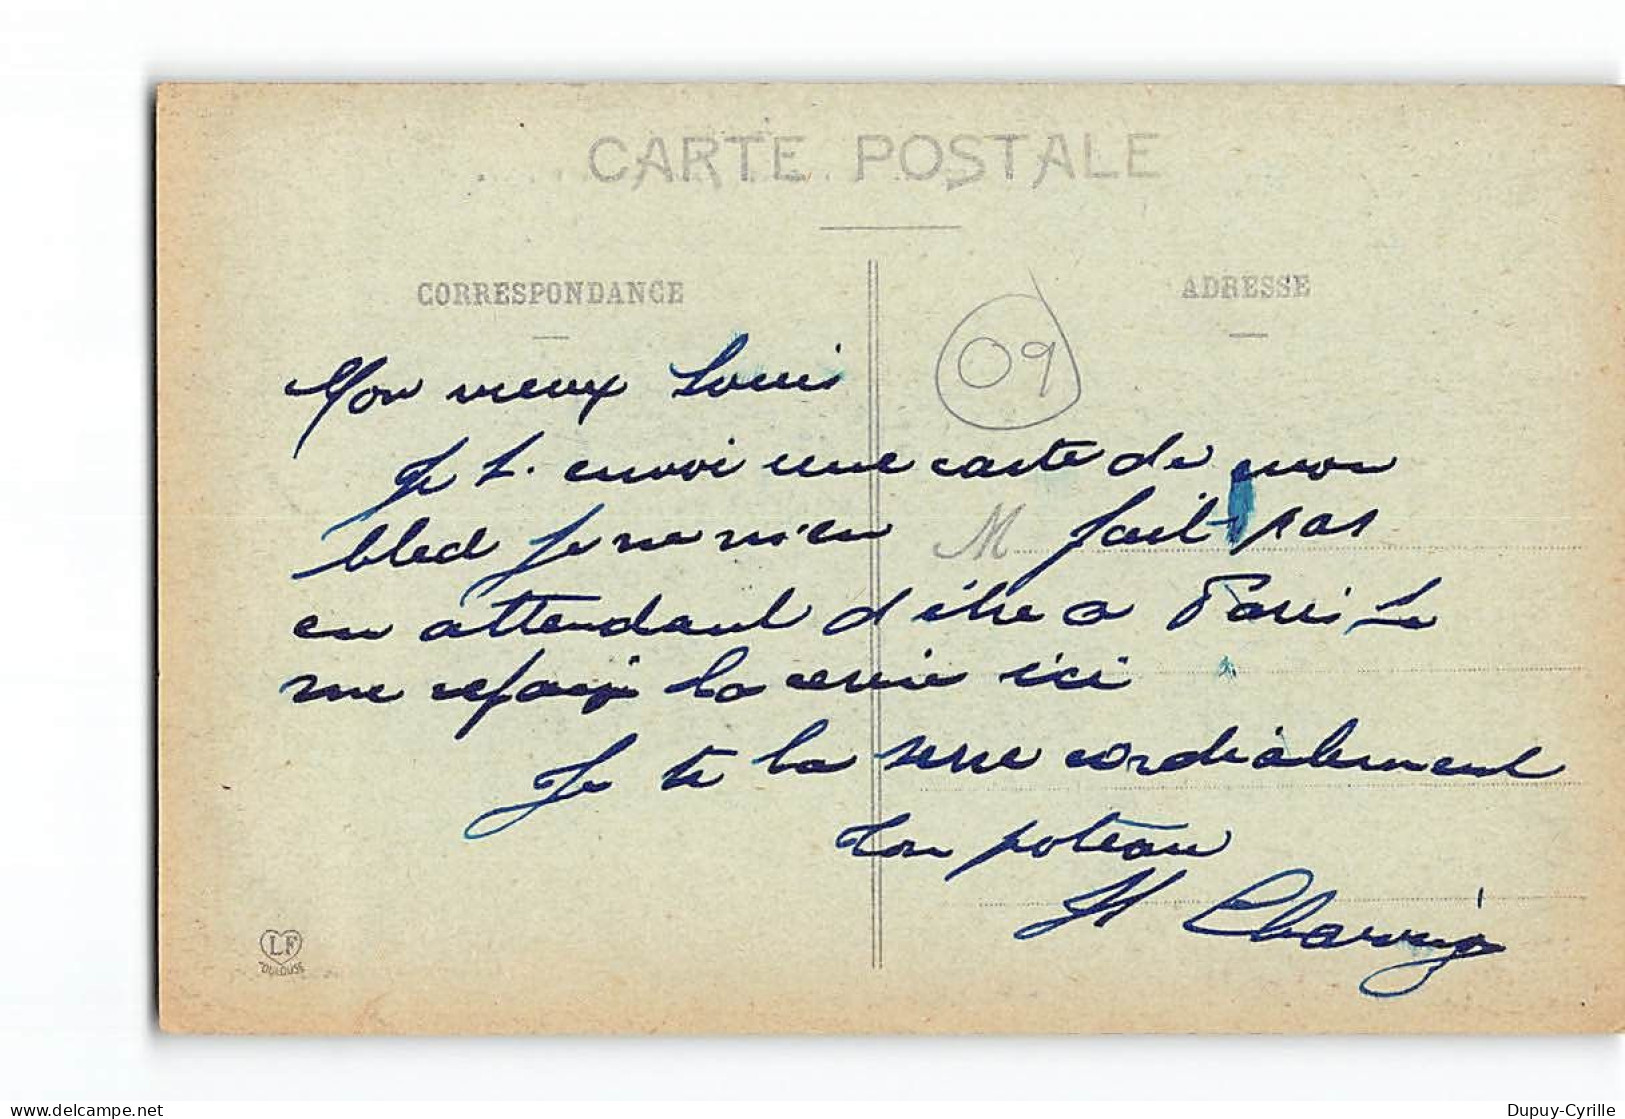 CARTE POSTALE
CORRESPONDANCE
ADRESSE
09
Mon vieux Louis
Je t. envoi une carte de mon
bled je ne m'en M fait pas
en attendant d'être a Paris Je
me refais la cerise ici
Je te la serre cordialement
Ton poteau
LF
TOULOUSE
Dupuy-Cyrille